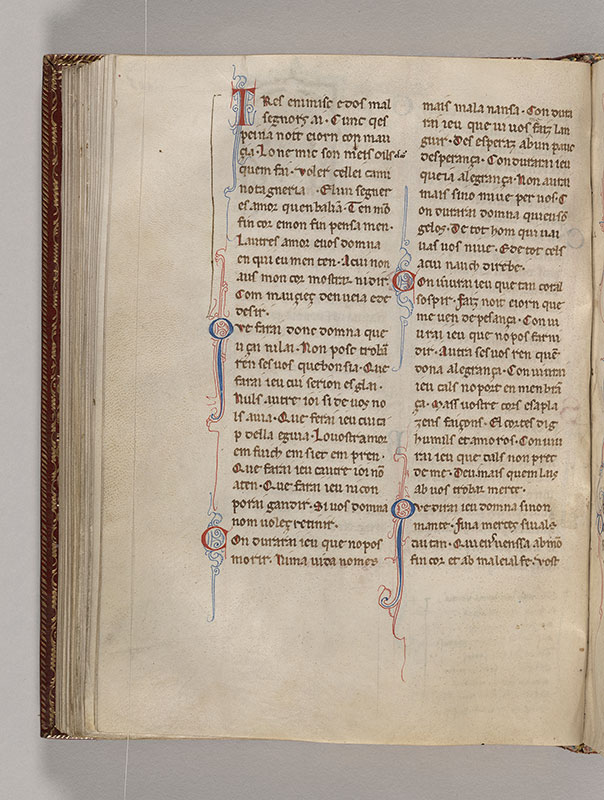 Tres enimisc e dos mal
segnors ai. Cunc qes
peina noit eiorn cop mau
çia. Lone mic son mers oils
quem fai. voler cellei cami
notagneria. Elun segner
es amor quenbaliã. Tenmõ
fin cor emon fin pensamen.
Lautres amor euos domna
en qui eu men ten. Acui non
aus mon cor mostrar ni dir.
Com mauçieç denueia ede
desir.
Que farai donc domna que
uçai nilai. Non posc trobar
ren ses uos quebon sia. Que
farai ieu cui serion esglai.
Nuls autre ioi si de uos no
ls auia. Que ferai ieu cui ca
p della eguia. Louostramor
em fuich em siet em pren.
Que farai ieu cautre ioi nõ
aten. Que farai ieu ni con
porai gandir. Si uos domna
nom uoleç retenir.
Con durarai ieu que no pos
morir. Numa uida nomes
mais mala nansa. Con dura
rai ieu que ui uos faiz lan
guir. Des esperaz ab un pauc
desperança. Con durarai ieu
que ia alegrança. Non aurai
mais sino miue per uos. C
on durarai domna quiensõ
gelos. De tot hom qui uai
uas uos niue. Ede tot cels
acui nauch dir be.
Con uiurai ieu que tan coral
sospir. Faiz noit eiorn que
me uen de pesança. Con ui
urai ieu que no pos far ni
dir. Autra ses uos ren quẽ
dona alegrança. Con uiurai
ieu cals no port en men brã
ça. Mass uostre cors esapla
zens faiçons. El cortes dig
humils et amoros. Con uiu
rai ieu que dals non prec
de me. Deu mais quem lais
ab uos trobar merce.
Que dirai ieu domna sinon
mante. Fina merceç si uals
cui tan. Qui en uenssa ab mõ
fin cor et ab maleial fe. uost